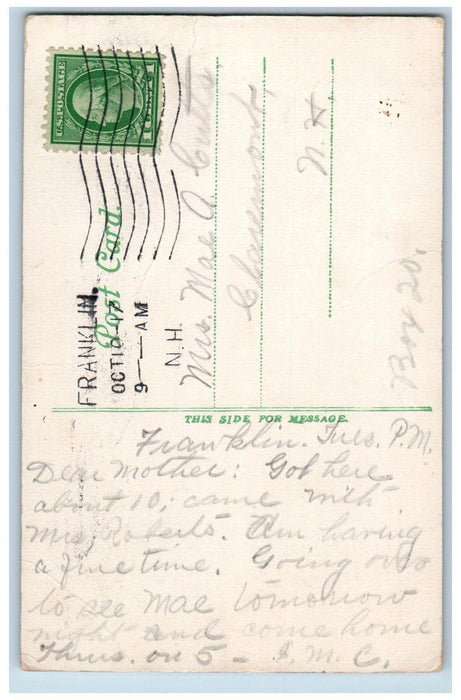 U.S. POSTAGE
1 CENT 1
FRANKLIN.
OCT 10
9 — AM
N.H.
Post Card.
Mrs. Mae A. Cutts,
Claremont,
N.H.
Box 20.
THIS SIDE FOR MESSAGE.
Franklin. Tues. P.M.
Dear Mother: Got here
about 10; came with
Mrs Roberts. Am having
a fine time. Going over
to see Mae tomorrow
night and come home
Thurs. on 5 - I. M. C.